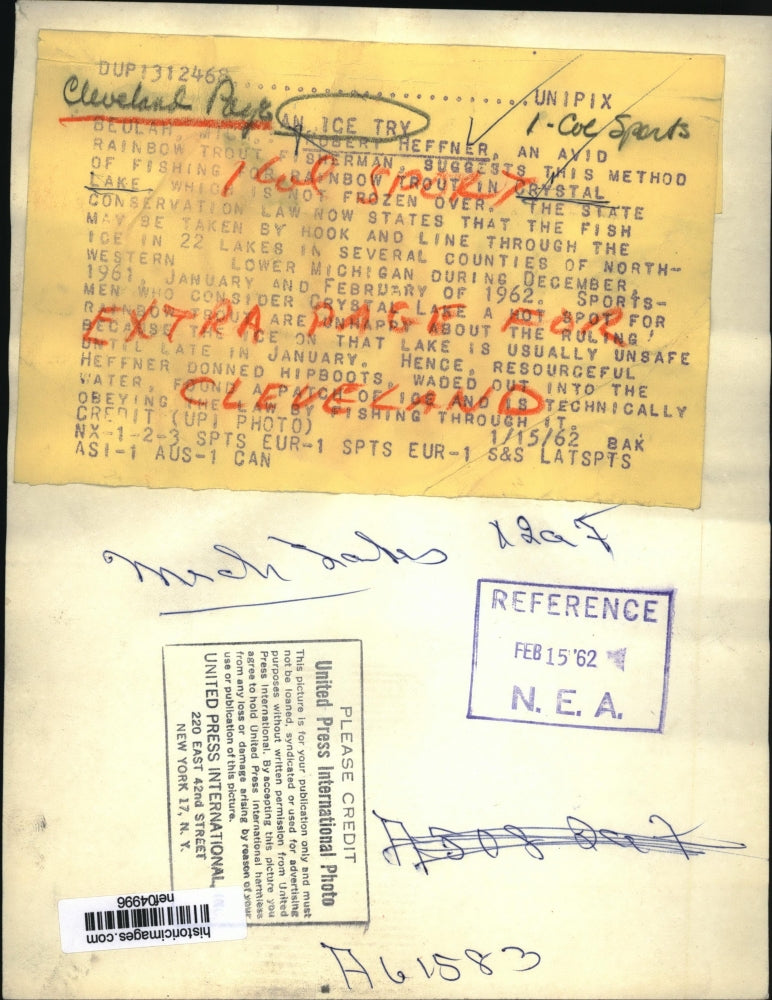 DUP1312468..............................UNIPIX
Cleveland Page
AN ICE TRY
1-Col Sports
BEULAH, MICH.: ROBERT HEFFNER, AN AVID
RAINBOW TROUT FISHERMAN, SUGGESTS THIS METHOD
OF FISHING FOR RAINBOW TROUT IN CRYSTAL
LAKE WHICH IS NOT FROZEN OVER. THE STATE
CONSERVATION LAW NOW STATES THAT THE FISH
MAY BE TAKEN BY HOOK AND LINE THROUGH THE
ICE IN 22 LAKES IN SEVERAL COUNTIES OF NORTH-
WESTERN LOWER MICHIGAN DURING DECEMBER,
1961, JANUARY AND FEBRUARY OF 1962. SPORTS-
MEN WHO CONSIDER CRYSTAL LAKE A HOT SPOT FOR
RAINBOW TROUT ARE UNHAPPY ABOUT THE RULING
BECAUSE THE ICE ON THAT LAKE IS USUALLY UNSAFE
UNTIL LATE IN JANUARY. HENCE, RESOURCEFUL
HEFFNER DONNED HIPBOOTS, WADED OUT INTO THE
WATER, FOUND A PATCH OF ICE AND IS TECHNICALLY
OBEYING THE LAW BY FISHING THROUGH IT.
CREDIT (UPI PHOTO) 1/15/62 BAK
NX-1-2-3 SPTS EUR-1 SPTS EUR-1 S&S LATSPTS
ASI-1 AUS-1 CAN
1 Col SPORT
EXTRA PAGE FOR
CLEVELAND
REFERENCE
FEB 15 '62
N. E. A.
PLEASE CREDIT
United Press International Photo
This picture is for your publication only and must
not be loaned, syndicated or used for advertising
purposes without written permission from United
Press International. By accepting this picture you
agree to hold United Press International harmless
from any loss or damage arising by reason of your
use or publication of this picture.
UNITED PRESS INTERNATIONAL,
220 EAST 42nd STREET
NEW YORK 17, N. Y.
historicimages.com
nef04996
A61583